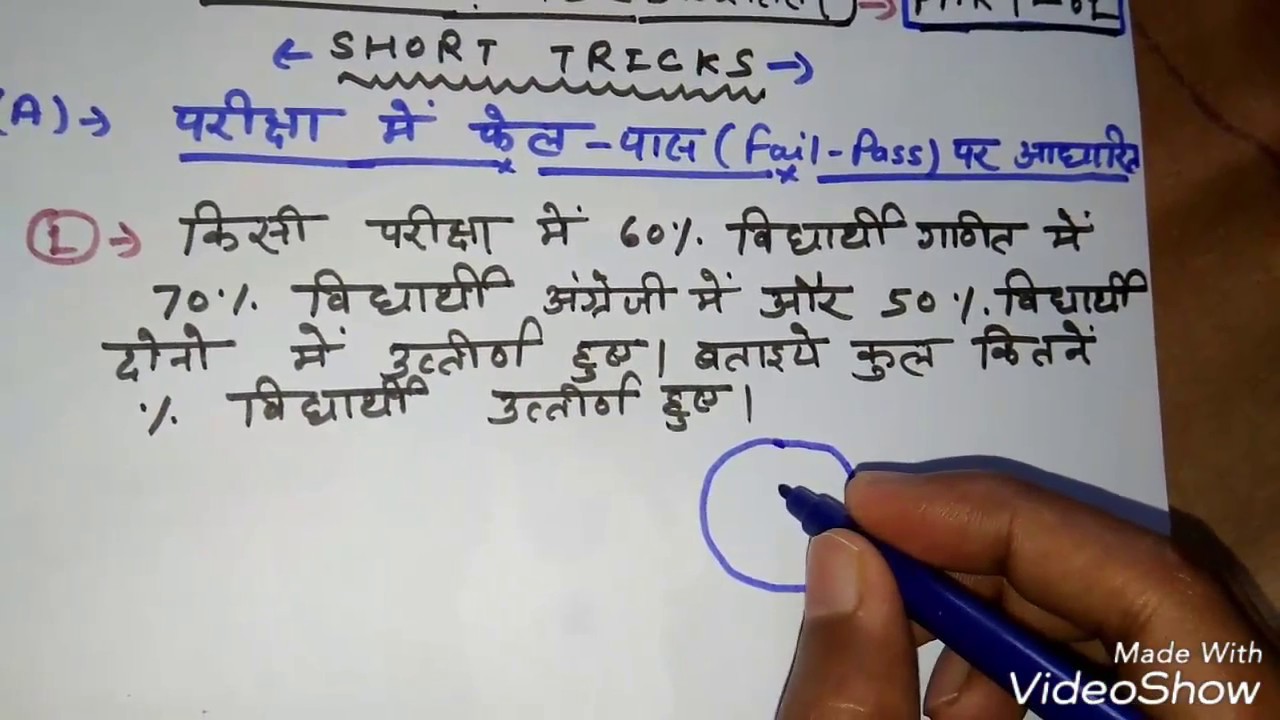 ← SHORT TRICKS →
(A)→ परीक्षा में फेल-पास (Fail-Pass) पर आधारित
1→ किसी परीक्षा में 60% विद्यार्थी गणित में
70% विद्यार्थी अंग्रेजी में और 50% विद्यार्थी
दोनो में उत्तीर्ण हुए। बताइये कुल कितनें
% विद्यार्थी उत्तीर्ण हुए।
Made With
VideoShow